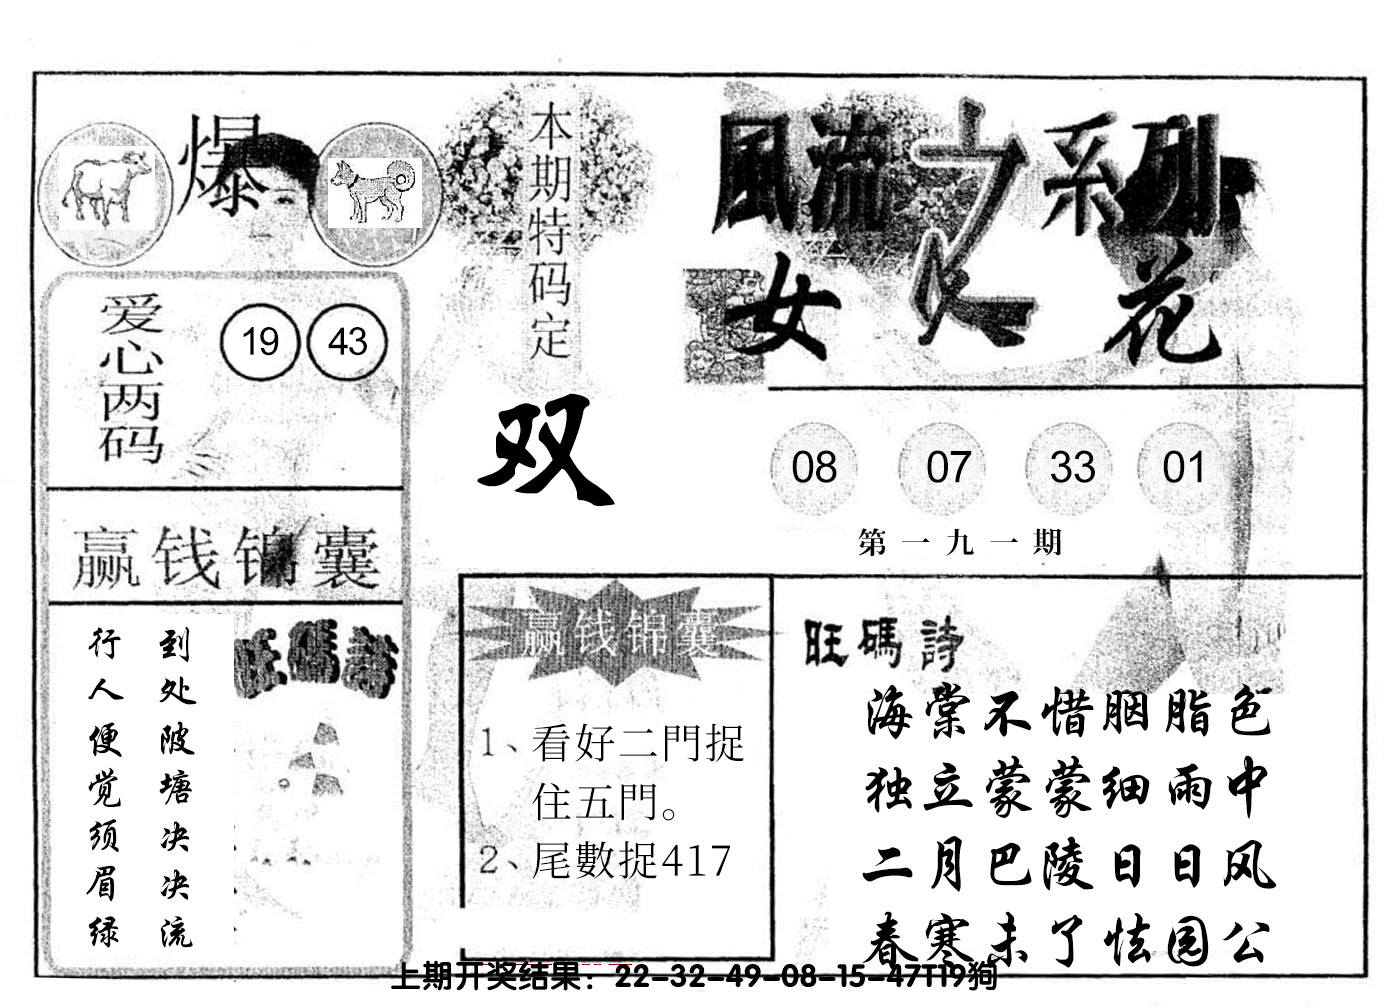 爆
本期特码定
双
風流之系列
女人花
爱心两码
19 43
08 07 33 01
第一九一期
赢钱锦囊
到处陂塘决决流
行人便觉须眉绿
旺碼詩
赢钱锦囊
1、看好二門捉
住五門。
2、尾數捉417
旺碼詩
海棠不惜胭脂色
独立蒙蒙细雨中
二月巴陵日日风
春寒未了怯园公
上期开奖结果：22-32-49-08-15-47T19狗